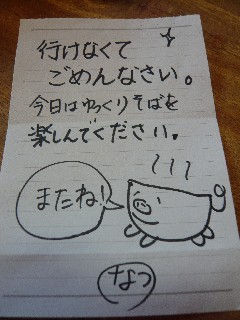 行けなくて
ごめんなさい。
今日はゆっくりそばを
楽しんでください。
またね!
なつ